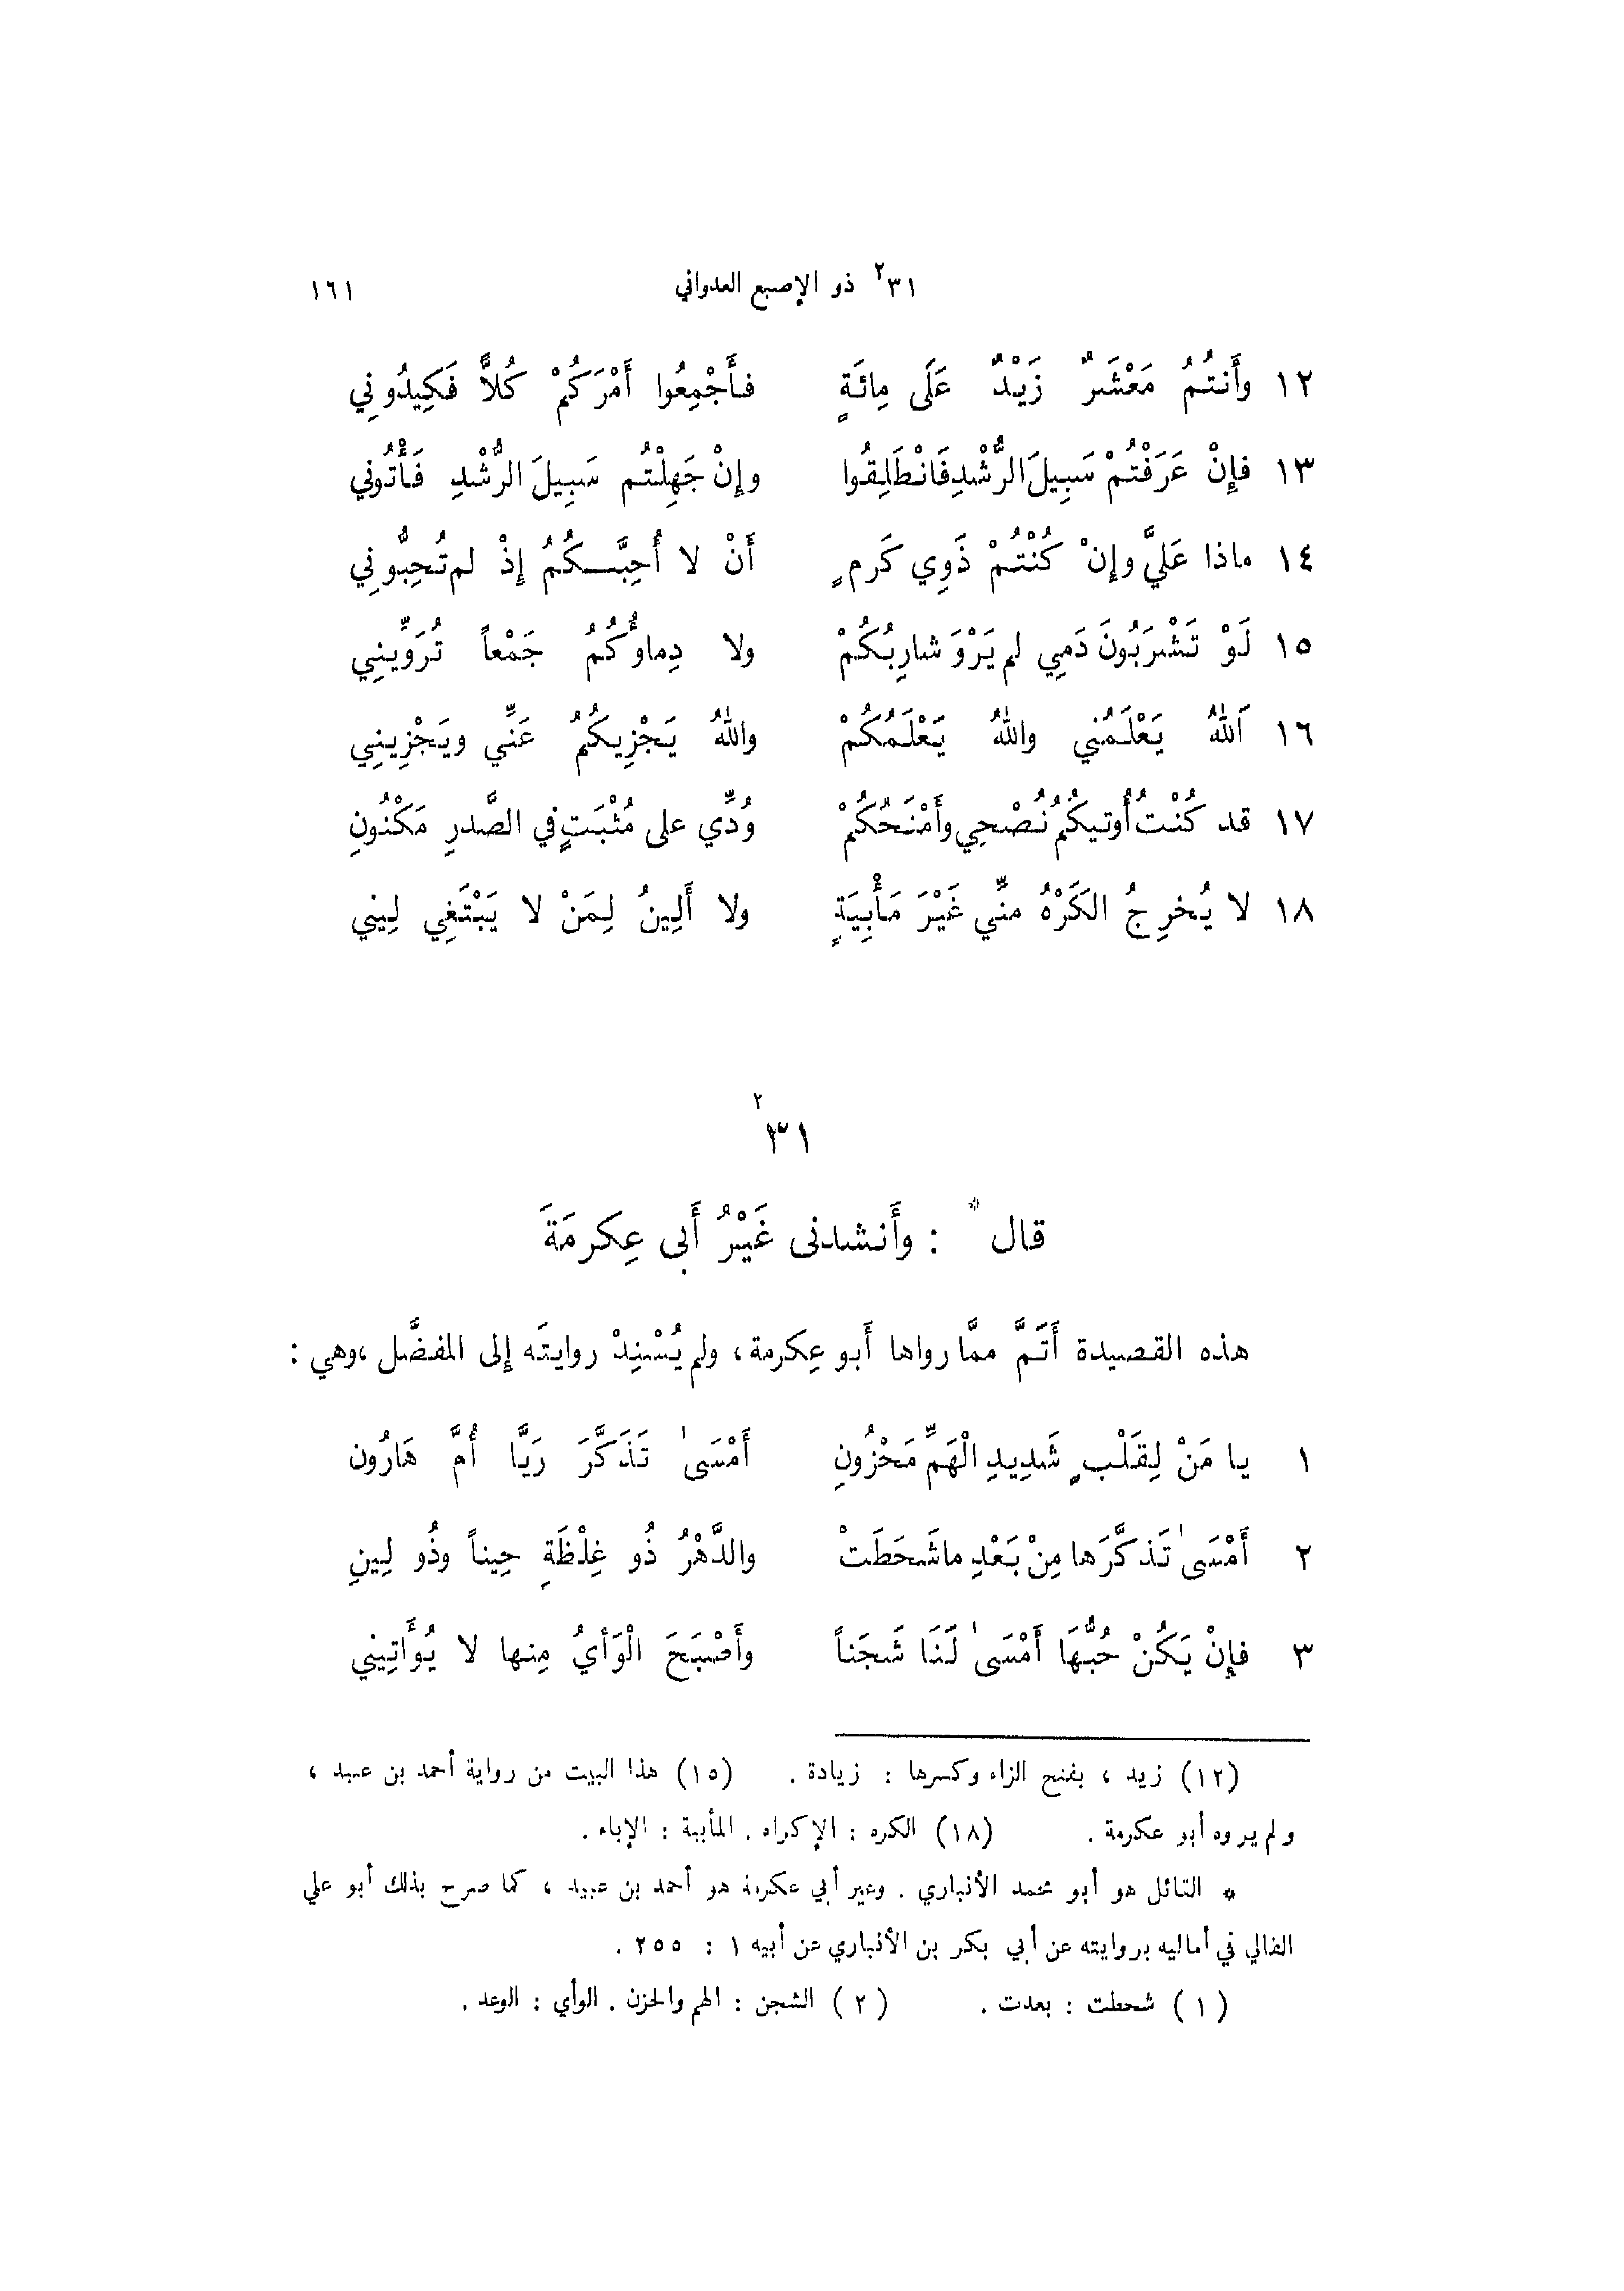 ٣١ ٢ ذو الإصبع العدواني ١٦١
١٢ وأَنتُمُ مَعْشَرٌ زَيْدٌ عَلَى مِائَةٍ فأَجْمِعُوا أَمْرَكُمْ كُلاًّ فَكِيدُونِي
١٣ فإِنْ عَرَفْتُمْ سَبِيلَ الرُّشْدِ فَانْطَلِقُوا وإِنْ جَهِلْتُم سَبِيلَ الرُّشْدِ فَأْتُونِي
١٤ ماذا عَلَيَّ وإِنْ كُنْتُمْ ذَوِي كَرمٍ أَنْ لا أُحِبَّكُمُ إِذْ لم تُحِبُّونِي
١٥ لَوْ تَشْرَبُونَ دَمِي لم يَرْوَ شارِبُكُمْ ولا دِماؤُكُمُ جَمْعاً تُرَوِّينِي
١٦ اَللهُ يَعْلَمُنِي واللهُ يَعْلَمُكُمْ واللهُ يَجْزِيكُمُ عَنِّي ويَجْزِينِي
١٧ قد كُنْتُ أُوتيكُمُ نُصْحِي وأَمْنَحُكُمْ وُدِّي على مُثْبَتٍ في الصَّدرِ مَكْنُونِ
١٨ لا يُخرِجُ الكَرْهُ منِّي غَيْرَ مَأْبِيَةٍ ولا أَلِينُ لِمَنْ لا يَبْتَغِي لِينِي
٣١ ٢
قال * : وأَنشدنى غَيْرُ أَبى عِكرمَةَ
هذه القصيدة أَتَمَّ ممَّا رواها أَبو عِكرمة، ولم يُسْنِدْ روايتَه إلى المفضَّل، وهي :
١ يا مَنْ لِقَلْبٍ شَدِيدِ الْهَمِّ مَحْزُونِ أَمْسَىٰ تَذَكَّرَ رَيَّا أُمَّ هَارُون
٢ أَمْسَىٰ تَذكَّرَها مِنْ بَعْدِ ما شَحَطَتْ والدَّهْرُ ذُو غِلْظَةٍ حِيناً وذُو لِينِ
٣ فإِنْ يَكُنْ حُبُّهَا أَمْسَىٰ لَنَا شَجَناً وأَصْبَحَ الْوَأْيُ مِنها لا يُوَٴاتِيني
(١٢) زيد ، بفتح الزاء وكسرها : زيادة . (١٥) هذا البيت من رواية أحمد بن عبيد ،
ولم يروه أبو عكرمة . (١٨) الكره : الإكراه . المأبية : الإباء .
* القائل هو أبو محمد الأنباري . وغير أبي عكرمة هو أحمد بن عبيد ، كما صرح بذلك أبو علي
القالي في أماليه بروايته عن أبي بكر بن الأنباري عن أبيه ١ : ٢٥٥ .
(١) شحطت : بعدت . (٢) الشجن : الهم والحزن . الوأي : الوعد .